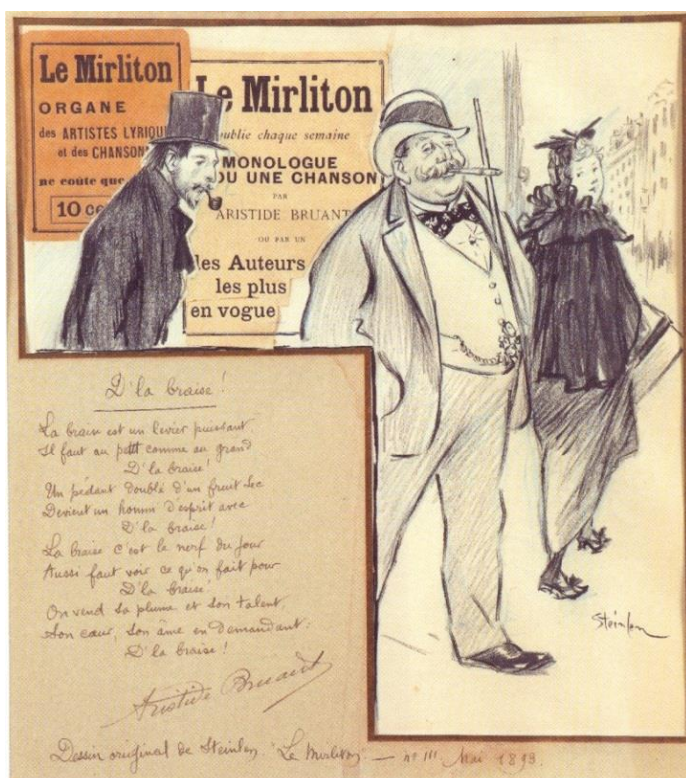 Le Mirliton
ORGANE
des ARTISTES LYRIQU
et des CHANSON
ne coûte que
10 ce
Le Mirliton
ublie chaque semaine
MONOLOGUE
OU UNE CHANSON
PAR
ARISTIDE BRUANT
OU PAR UN
les Auteurs
les plus
en vogue
D'la braise !
La braise est un levier puissant.
Il faut au petit comme au grand
D'la braise !
Un pédant doublé d'un fruit sec
Devient un homme d'esprit avec
D'la braise !
La braise c'est le nerf du jour
Aussi faut voir ce qu'on fait pour
D'la braise !
On vend sa plume et son talent,
Son cœur, son âme en demandant :
D'la braise !
Aristide Bruant
Steinlen
Dessin original de Steinlen. "Le Mirliton" — nº 111 Mai 1893.